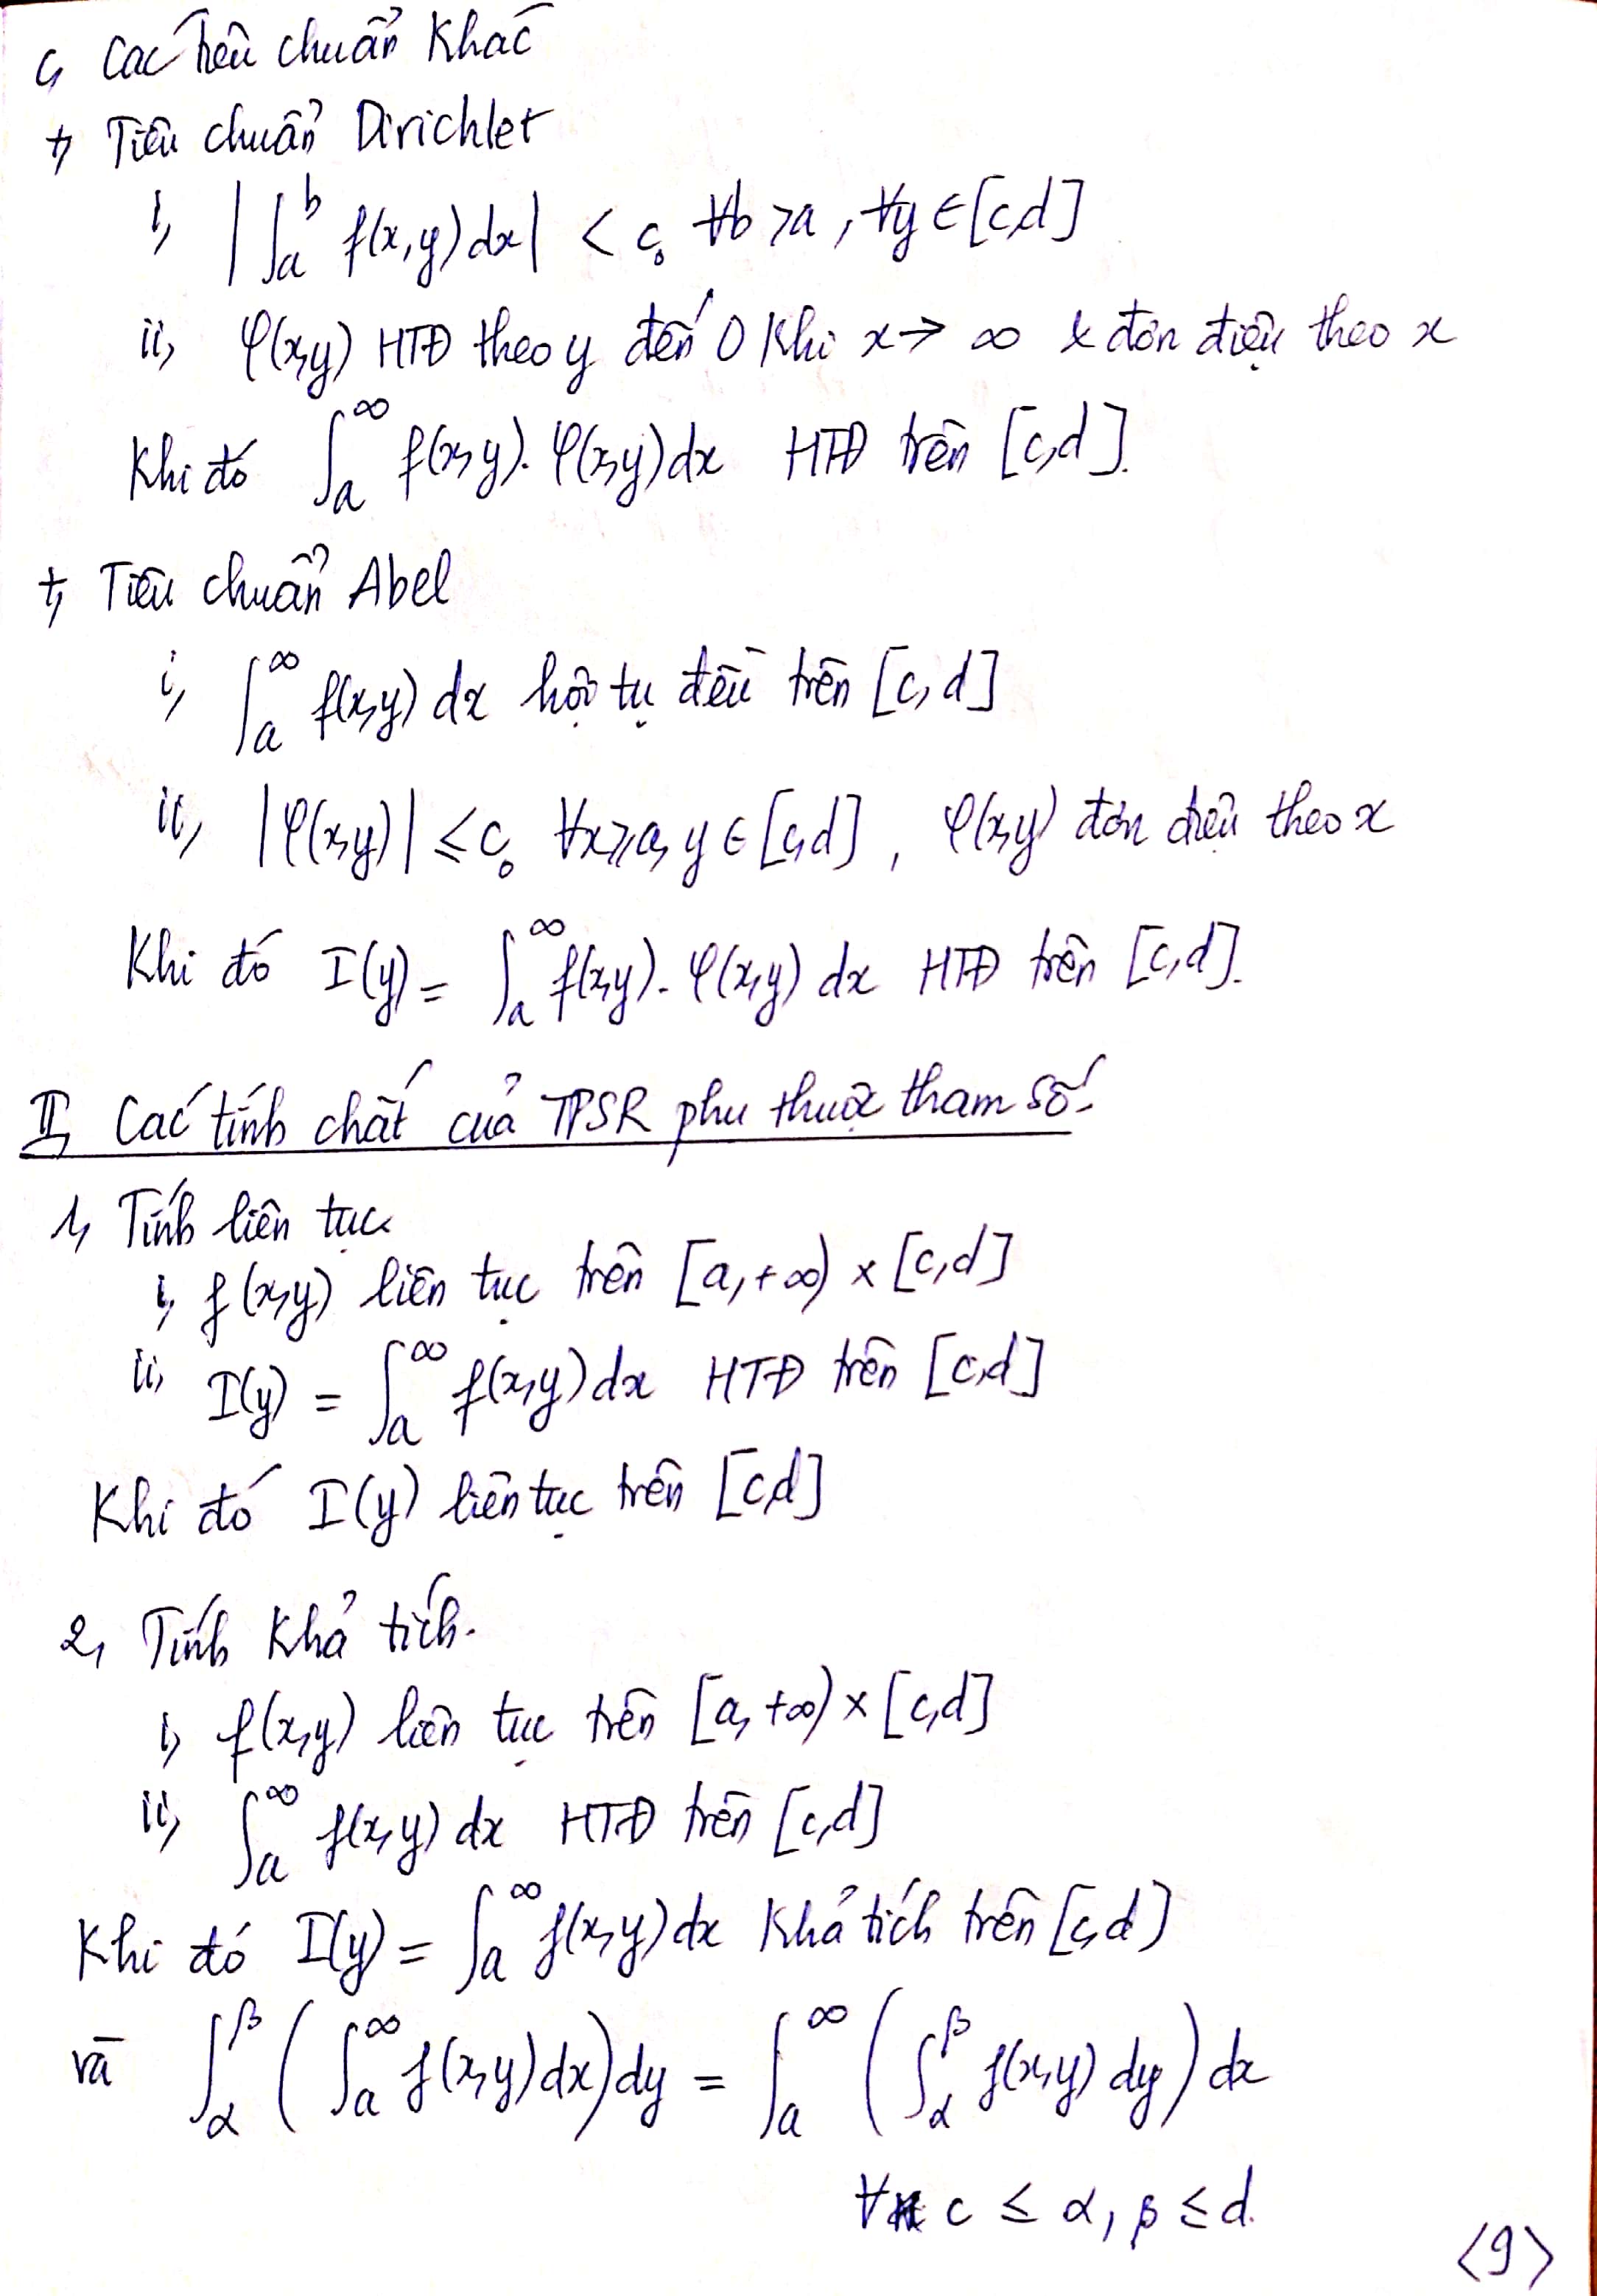 c, Các tiêu chuẩn khác
+, Tiêu chuẩn Dirichlet
i, |∫_a^b f(x,y) dx| < c₀ ∀b > a, ∀y ∈ [c,d]
ii, φ(x,y) HTĐ theo y đến 0 khi x → ∞ & đơn điệu theo x
Khi đó ∫_a^∞ f(x,y). φ(x,y) dx HTĐ trên [c,d].
+, Tiêu chuẩn Abel
i, ∫_a^∞ f(x,y) dx hội tụ đều trên [c,d]
ii, |φ(x,y)| ≤ c₀ ∀x ≥ a, y ∈ [c,d], φ(x,y) đơn điệu theo x
Khi đó I(y) = ∫_a^∞ f(x,y). φ(x,y) dx HTĐ trên [c,d].
II, Các tính chất của TPSR phụ thuộc tham số.
1, Tính liên tục
i, f(x,y) liên tục trên [a,+∞) × [c,d]
ii, I(y) = ∫_a^∞ f(x,y) dx HTĐ trên [c,d]
Khi đó I(y) liên tục trên [c,d]
2, Tính khả tích.
i, f(x,y) liên tục trên [a,+∞) × [c,d]
ii, ∫_a^∞ f(x,y) dx HTĐ trên [c,d]
Khi đó I(y) = ∫_a^∞ f(x,y) dx khả tích trên [c,d]
và ∫_α^β (∫_a^∞ f(x,y) dx) dy = ∫_a^∞ (∫_α^β f(x,y) dy) dx
∀ c ≤ α, β ≤ d.
<9>